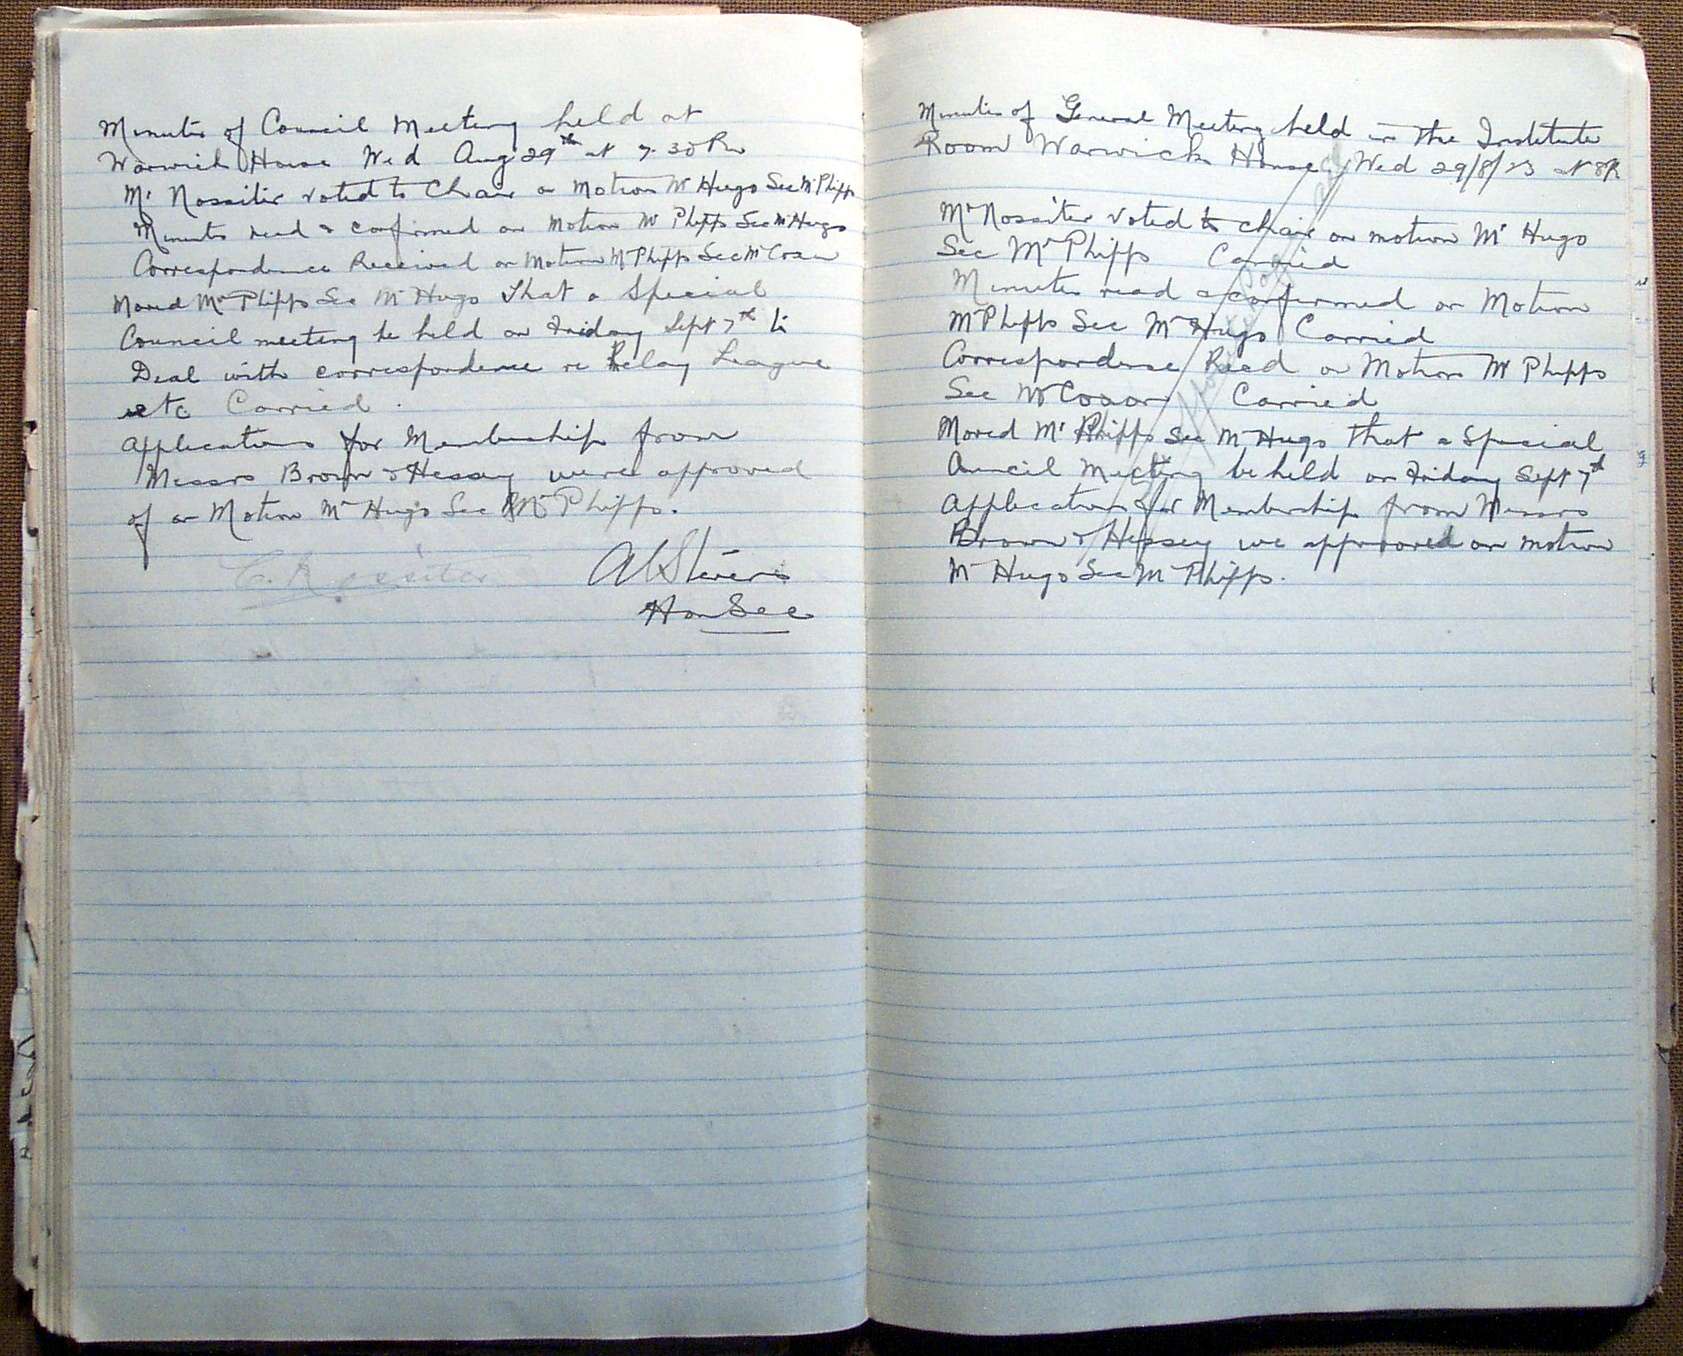 Minutes of Council Meeting held at
Warwick House Wed Aug 29th at 7.30 Pm
Mr Nossiter voted to Chair on Motion Mr Hugo Sec Mr Phipps
Minutes read & confirmed on Motion Mr Phipps Sec Mr Hugo
Correspondence Received on Motion Mr Phipps Sec Mr Coxon
Moved Mr Phipps Sec Mr Hugo that a Special
Council meeting be held on Friday Sept 7th to
Deal with correspondence re Relay League
etc Carried.
Applications for Membership from
Messrs Brown & Hessey were approved
of on Motion Mr Hugo Sec Mr Phipps.
Hon Sec
Minutes of General Meeting held in the Institute
Room Warwick House Wed 29/8/23 at 8P
Mr Nossiter voted to chair on motion Mr Hugo
Sec Mr Phipps Carried
Minutes read & confirmed on Motion
Mr Phipps Sec Mr Hugo Carried
Correspondence Read on Motion Mr Phipps
Sec Mr Coxon Carried
Moved Mr Phipps Sec Mr Hugo that a Special
Council Meeting be held on Friday Sept 7th
Applications for Membership from Messrs
Brown & Hessey we approved on motion
Mr Hugo Sec Mr Phipps.